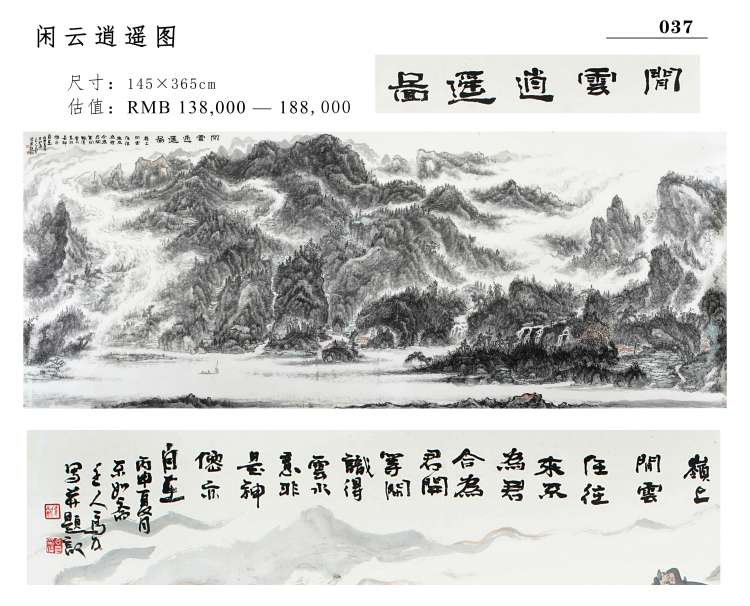 闲云逍遥图
037
尺寸：145×365cm
估值：RMB 138,000 — 188,000
閒雲逍遥圖
閒雲逍遥圖
嶺上
閒雲
任往
來不
為君
合為
君開
等閒
識得
雲水
意非
是神
僊亦
自在
丙申夏月
主人
寫并題記